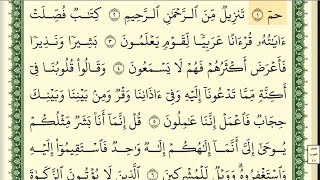 حمٓ ١ تَنزِيلٌ مِّنَ ٱلرَّحْمَٰنِ ٱلرَّحِيمِ ٢ كِتَٰبٌ فُصِّلَتْ
ءَايَٰتُهُۥ قُرْءَانًا عَرَبِيًّا لِّقَوْمٍ يَعْلَمُونَ ٣ بَشِيرًا وَنَذِيرًا
فَأَعْرَضَ أَكْثَرُهُمْ فَهُمْ لَا يَسْمَعُونَ ٤ وَقَالُوا۟ قُلُوبُنَا فِىٓ
أَكِنَّةٍ مِّمَّا تَدْعُونَآ إِلَيْهِ وَفِىٓ ءَاذَانِنَا وَقْرٌ وَمِنۢ بَيْنِنَا وَبَيْنِكَ
حِجَابٌ فَٱعْمَلْ إِنَّنَا عَٰمِلُونَ ٥ قُلْ إِنَّمَآ أَنَا۠ بَشَرٌ مِّثْلُكُمْ
يُوحَىٰٓ إِلَىَّ أَنَّمَآ إِلَٰهُكُمْ إِلَٰهٌ وَٰحِدٌ فَٱسْتَقِيمُوٓا۟ إِلَيْهِ
وَٱسْتَغْفِرُوهُ ۗ وَوَيْلٌ لِّلْمُشْرِكِينَ ٦ ٱلَّذِينَ لَا يُؤْتُونَ ٱلزَّكَوٰةَ